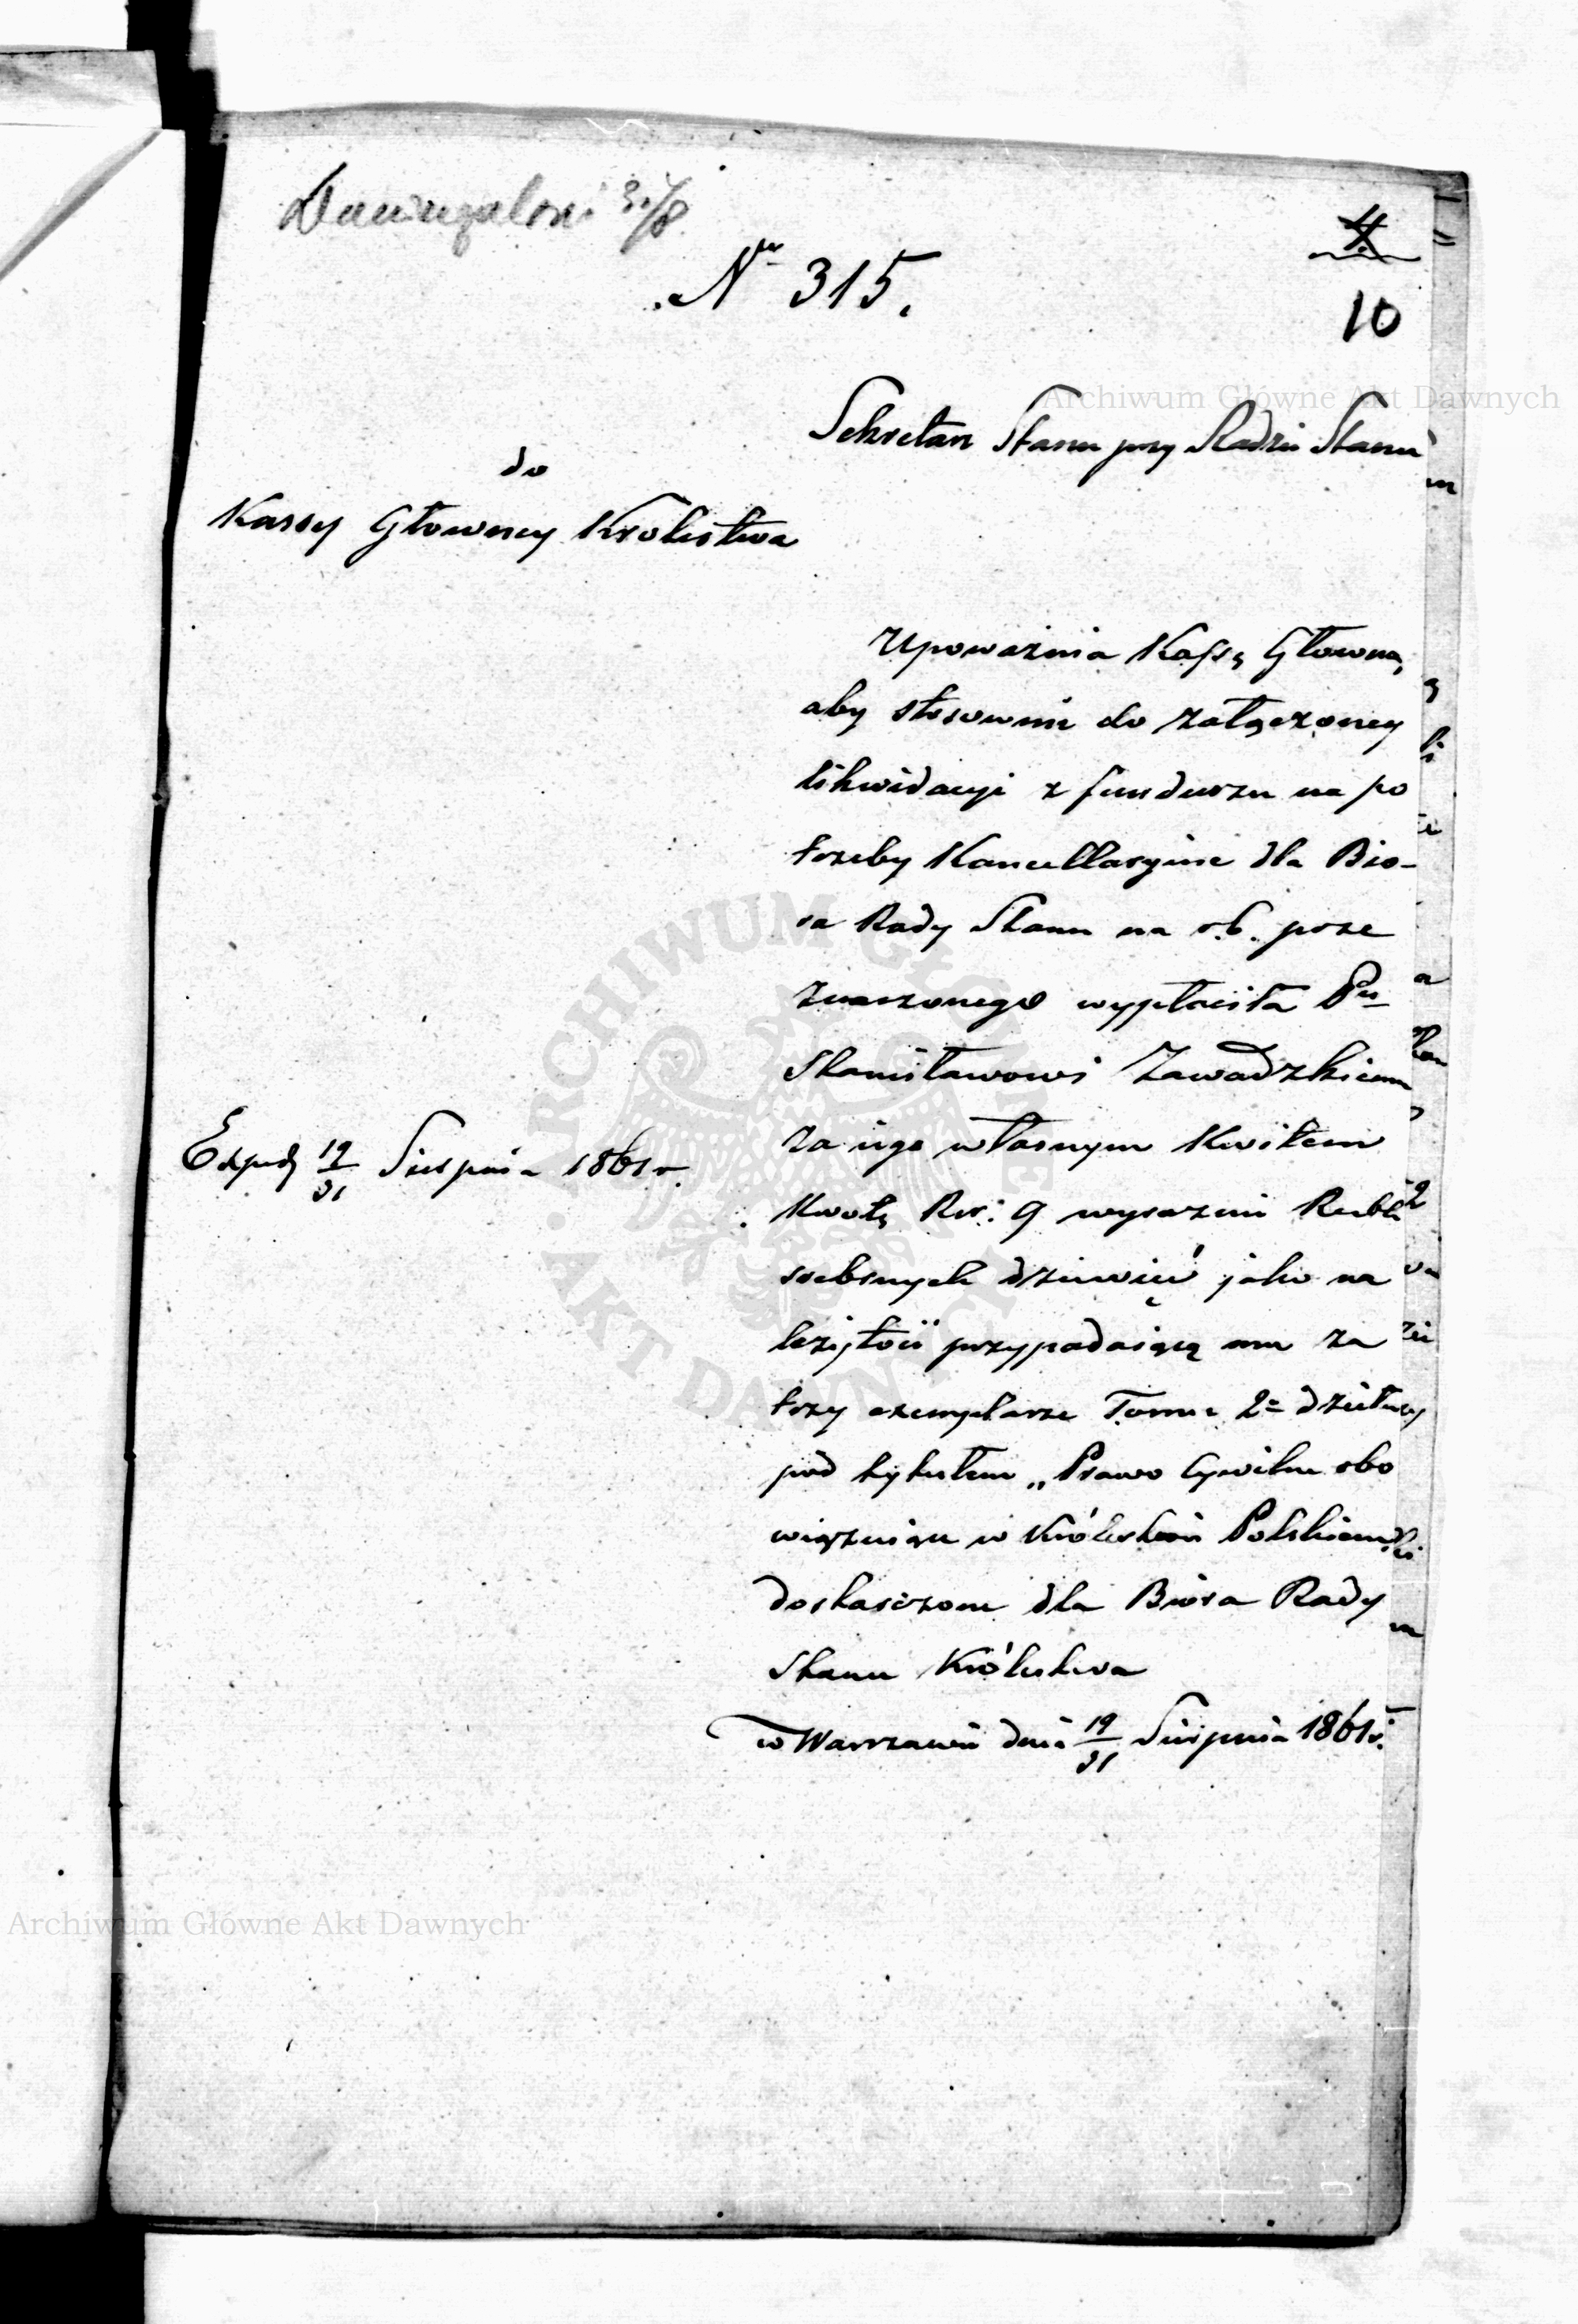 31/8
Nr 315.
4.
10
Archiwum Główne Akt Dawnych
Sekretarz Stanu przy Radzie Stanu
do
Kassy Głowney Krolestwa
Upoważnia Kassę Głowną,
aby stosownie do załączoney
likwidacyi z funduszu na po
trzeby Kancellaryine dla Bio-
ra Rady Stanu na r.b. prze
znaczonego wypłaciła Pu
Stanisławowi Zawadzkiemu
za iego własnym Kwitem
Kwotę Rsr: 9 wyraznie Rubli
srebrnych dziewięć jako na
leżytość przypadaiącą mu za
trzy exemplarze Tomu 2o dzieła
pod tytułem „Prawo Cywilne obo
wiązuiące w Królestwie Polskiem
dostarczone dla Biora Rady
Stanu Królestwa
w Warszawie dnia 19/31 Sierpnia 1861 r.
Exped 19/31 Sierpnia 1861 r.
ARCHIWUM GŁÓWNE
AKT DAWNYCH
Archiwum Główne Akt Dawnych